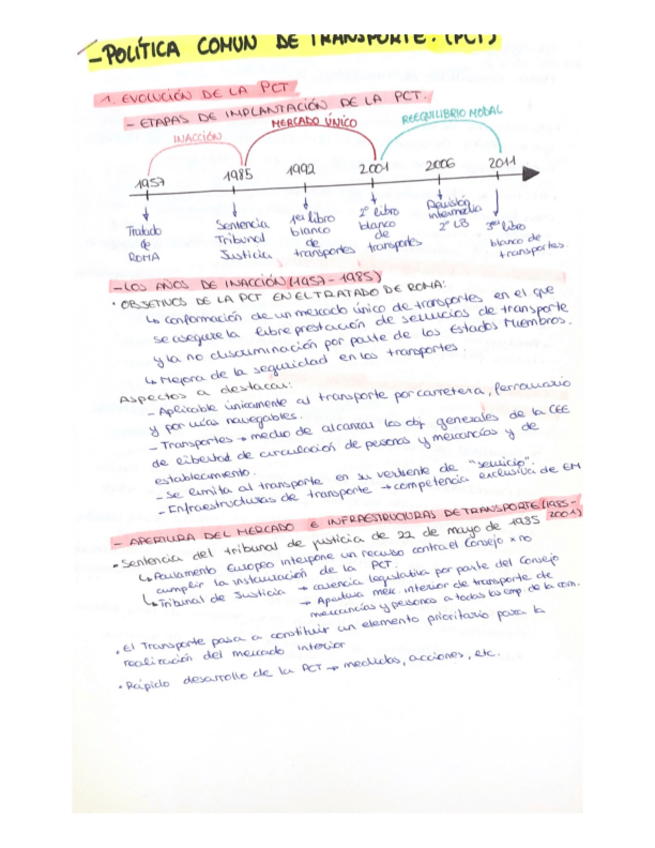 - POLÍTICA COMUN DE TRANSPORTE. (PCT)
1. EVOLUCIÓN DE LA PCT
- ETAPAS DE IMPLANTACIÓN DE LA PCT.
INACCIÓN MERCADO ÚNICO REEQUILIBRIO MODAL
1957 1985 1992 2001 2006 2011
Tratado de ROMA
Sentencia Tribunal Justicia
1er libro blanco de transportes
2º libro blanco de transportes
Revisión intermedia 2º LB
3er libro blanco de transportes.
- LOS AÑOS DE INACCIÓN (1957 - 1985)
· OBJETIVOS DE LA PCT EN EL TRATADO DE ROMA:
↳ conformación de un mercado único de transportes en el que
se asegure la libre prestación de servicios de transporte
y la no discriminación por parte de los Estados Miembros.
↳ Mejora de la seguridad en los transportes
Aspectos a destacar:
- Aplicable únicamente al transporte por carretera, ferroviario
y por vías navegables.
- Transportes → medio de alcanzar los obj. generales de la CEE
de libertad de circulación de personas y mercancías y de
establecimiento.
- Se limita al transporte en su vertiente de "servicio".
- Infraestructuras de transporte → competencia exclusiva de EM
- APERTURA DEL MERCADO E INFRAESTRUCTURAS DE TRANSPORTE (1985 - 2001)
· Sentencia del tribunal de justicia de 22 de mayo de 1985
↳ Parlamento Europeo interpone un recurso contra el Consejo x no
cumplir la instauración de la PCT.
↳ Tribunal de Justicia → carencia legislativa por parte del Consejo
→ Apertura merc. interior de transporte de
mercancías y personas a todas las emp. de la com.
· El Transporte pasa a constituir un elemento prioritario para la
realización del mercado interior
· Rápido desarrollo de la PCT → medidas, acciones, etc.